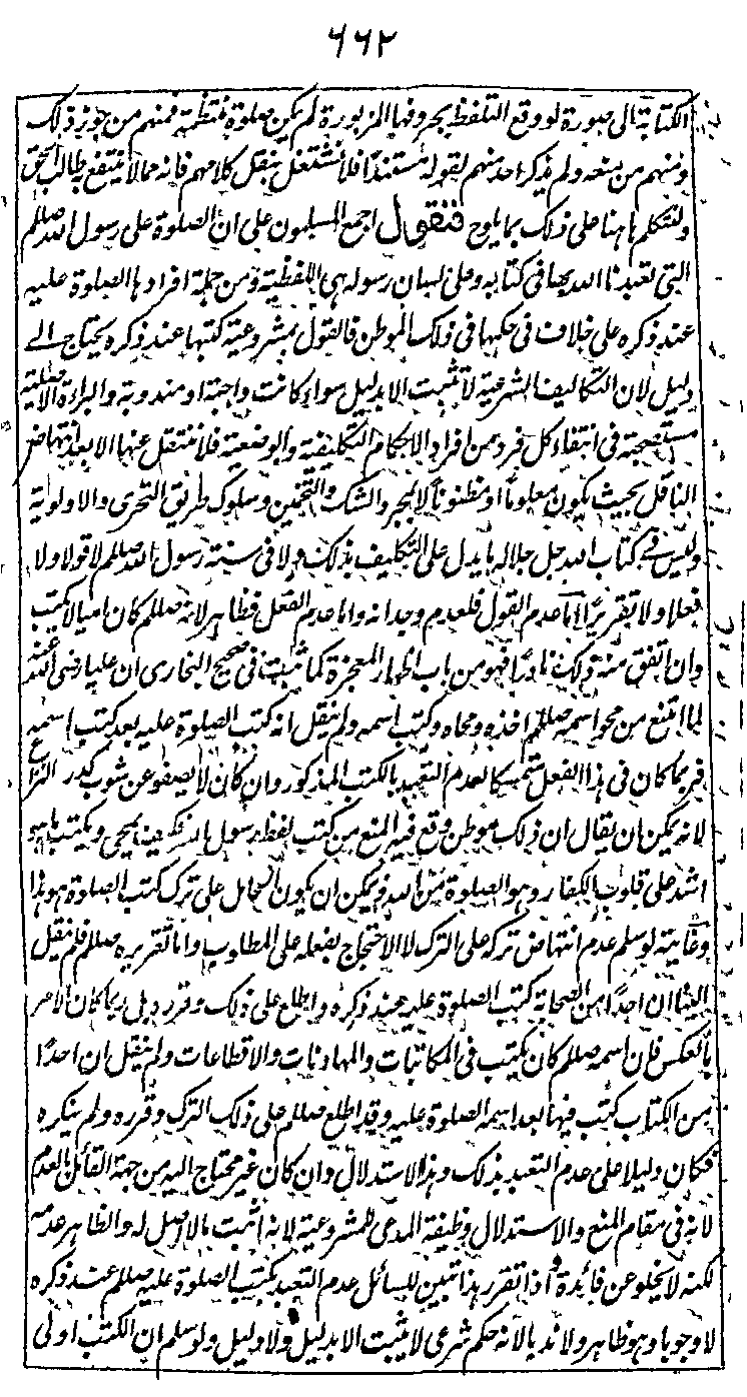 ٦٦٢
الكتابة الى صورة لو وقع التلفظ بحروفها المزبورة لم يكن صلوة منتظمة فمنهم من جوز ذلك
ومنهم من منعه ولم يذكر احد منهم لقوله مستندا فلا نشتغل بنقل كلامهم فانه مما لا ينتفع به طالب الحق
ولنتكلم ههنا على ذلك بما يلوح فنقول اجمع المسلمون على ان الصلوة على رسول الله صللم
التى تعبدنا الله بها فى كتابه وعلى لسان رسوله هى اللفظية ومن جملة افرادها الصلوة عليه
عند ذكره على خلاف فى حكمها فى ذلك الموطن فالقول بمشروعية كتبها عند ذكره يحتاج الے
دليل لان التكاليف الشرعية لا تثبت الا بدليل سواء كانت واجبة او مندوبة والبراءة الاصلية
مستصحبة فى انتفاء كل فرد من افراد الاحكام التكليفية والوضعية فلا ننتقل عنها الا بعد انتهاض
الناقل بحيث يكون معلوما او مظنونا لا لمجرد الشك والتخمين وسلوك طريق التحرى والاولوية
وليس فے كتاب الله جل جلاله ما يدل على التكليف بذلك ولا فى سنة رسول الله صللم لا قولا ولا
فعلا ولا تقريرا اما عدم القول فلعدم وجدانه واما عدم الفعل فظاهر لانه صللم كان اميا لا يكتب
وان اتفق منه ذلك نادرا فهو من باب اظهار المعجزة كما ثبت فى صحيح البخارى ان عليا رضى الله عنه
لما امتنع من محو اسمه صللم اخذه ومحاه وكتب اسمه ولم ينقل انه كتب الصلوة عليه بعد كتب اسمه
فربما كان فى هذا الفعل متمسكا لعدم التعبد بالكتب المذكور وان كان لا يصفو عن شوب كدر النزاع
لانه يمكن ان يقال ان ذلك موطن وقع فيه المنع من كتب لفظ رسول الله فكيف يمحى ويكتب ما هو
اشد على قلوب الكفار وهو الصلوة من الله فيمكن ان يكون الحامل على ترك كتب الصلوة هو هذا
وغايته لو سلم عدم انتهاض تركه على الترك لا الاحتجاج بفعله على المطلوب واما تقريره صللم فلم ينقل
الينا ان احدا من الصحابة كتب الصلوة عليه عند ذكره واطلع على ذلك وقرره بل ربما كان الامر
بالعكس فان اسمه صللم كان يكتب فى المكاتبات والمهادنات والاقطاعات ولم ينقل ان احدا
من الكتاب كتب فيها بعد اسمه الصلوة عليه وقد اطلع صللم على ذلك الترك وقرره ولم ينكره
فكان دليلا على عدم التعبد بذلك وهذا الاستدلال وان كان غير محتاج اليه من جهة القائل بالعدم
لانه فى مقام المنع والاستدلال وظيفة المدعى للمشروعية لانه اثبت ما لا اصل له والظاهر عدمه
لكنه لا يخلو عن فائدة واذا تقرر هذا تبين للسائل عدم التعبد بكتب الصلوة عليه صللم عند ذكره
لا وجوبا وهو ظاهر ولا ندبا لانه حكم شرعى لا يثبت الا بدليل ولا دليل ولو سلم ان الكتب اولى